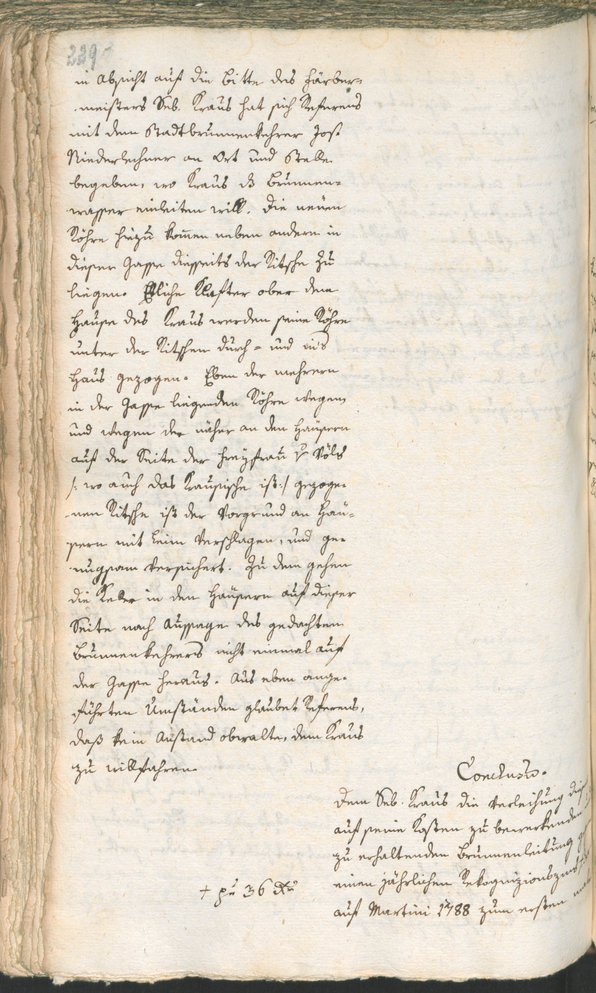 239
in Absicht auf die Bitte des Färber-
meisters Seb. Kraus hat sich Referens
mit dem Stadtbrunnenkehrer Jos.
Niederlechner an Ort und Stelle
begeben, wo Kraus das Brunnen-
wasser einleiten will. Die neuen
Röhre hiezu kommen neben andern in
dieser Gasse diesseits der Ritsche zu
liegen. Etliche Klafter ober dem
Hause des Kraus werden seine Röhre
unter der Ritschen durch- und ins
Haus gezogen. Eben der mehrern
in der Gasse liegenden Röhre wegen
und wegen der näher an den Häusern
auf der Seite der Freyfrau v Völs
/: wo auch das Krausische ist :/ gezoge-
nen Ritsche ist der Vorgrund an Häu-
sern mit Leim verschlagen, und ge-
nugsam versichert. Zu dem gehen
die Keler in den Häusern auf dieser
Seite nach Aussage des gedachten
Brunnenkehrers nicht einmal auf
der Gasse heraus. Aus eben ange-
führten Umständen glaubet Referens,
daß kein Anstand obwalte, dem Kraus
zu willfahren.
Conclusum.
Dem Seb. Kraus die Verleihung
auf seine Kosten zu bewerkenden
zu erhaltenden Brunnenleitung
einen jährlichen Rekognizionszins
auf Martini 1788 zum ersten
+ pr 36 xr